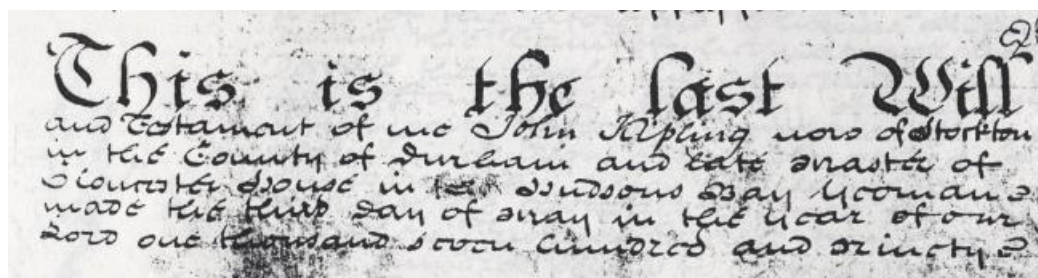 This is the last Will
and Testament of me John Kipling now of Stockton
in the County of Durham and late Master of
Gloucester House in Hudsons Bay Yeoman
made the third day of May in the Year of our
Lord one thousand seven hundred and Ninety